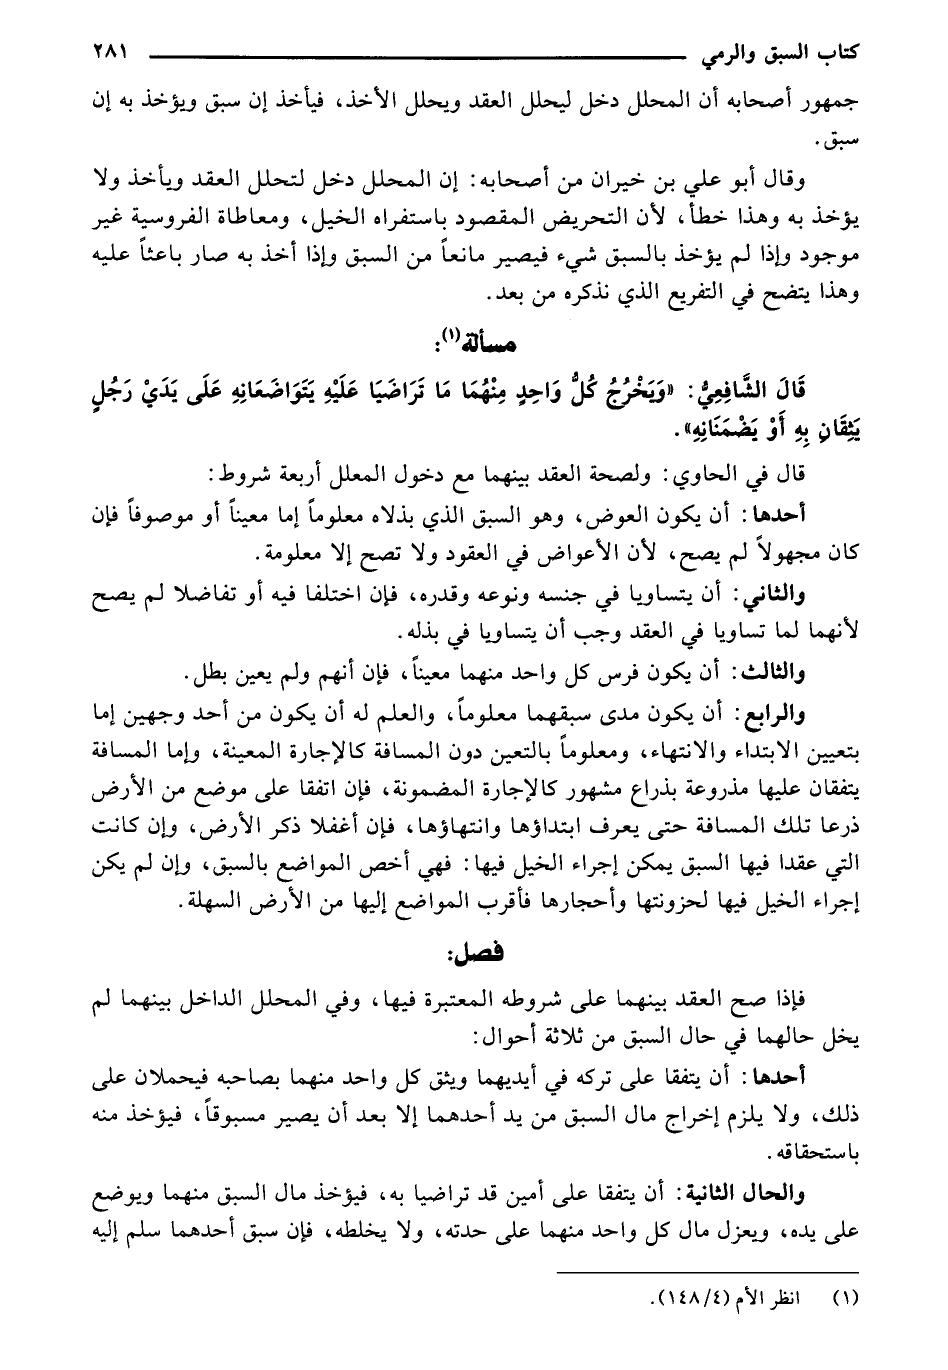 كتاب السبق والرمي ٢٨١
جمهور أصحابه أن المحلل دخل ليحلل العقد ويحلل الأخذ، فيأخذ إن سبق ويؤخذ به إن
سبق.
وقال أبو علي بن خيران من أصحابه: إن المحلل دخل لتحلل العقد ويأخذ ولا
يؤخذ به وهذا خطأ، لأن التحريض المقصود باستفراه الخيل، ومعاطاة الفروسية غير
موجود وإذا لم يؤخذ بالسبق شيء فيصير مانعاً من السبق وإذا أخذ به صار باعثاً عليه
وهذا يتضح في التفريع الذي نذكره من بعد.
مسألة(١):
قَالَ الشَّافِعِيُّ: «وَيَخْرُجُ كُلُّ وَاحِدٍ مِنْهُمَا مَا تَرَاضَيَا عَلَيْهِ يَتَوَاضَعَانِهِ عَلَى يَدَيْ رَجُلٍ
يَثِقَانِ بِهِ أَوْ يَضْمَنَانِهِ».
قال في الحاوي: ولصحة العقد بينهما مع دخول المعلل أربعة شروط:
أحدها: أن يكون العوض، وهو السبق الذي بذلاه معلوماً إما معيناً أو موصوفاً فإن
كان مجهولاً لم يصح، لأن الأعواض في العقود ولا تصح إلا معلومة.
والثاني: أن يتساويا في جنسه ونوعه وقدره، فإن اختلفا فيه أو تفاضلا لم يصح
لأنهما لما تساويا في العقد وجب أن يتساويا في بذله.
والثالث: أن يكون فرس كل واحد منهما معيناً، فإن أنهم ولم يعين بطل.
والرابع: أن يكون مدى سبقهما معلوماً، والعلم له أن يكون من أحد وجهين إما
بتعيين الابتداء والانتهاء، ومعلوماً بالتعين دون المسافة كالإجارة المعينة، وإما المسافة
يتفقان عليها مذروعة بذراع مشهور كالإجارة المضمونة، فإن اتفقا على موضع من الأرض
ذرعا تلك المسافة حتى يعرف ابتداؤها وانتهاؤها، فإن أغفلا ذكر الأرض، وإن كانت
التي عقدا فيها السبق يمكن إجراء الخيل فيها: فهي أخص المواضع بالسبق، وإن لم يكن
إجراء الخيل فيها لحزونتها وأحجارها فأقرب المواضع إليها من الأرض السهلة.
فصل:
فإذا صح العقد بينهما على شروطه المعتبرة فيها، وفي المحلل الداخل بينهما لم
يخل حالهما في حال السبق من ثلاثة أحوال:
أحدها: أن يتفقا على تركه في أيديهما ويثق كل واحد منهما بصاحبه فيحملان على
ذلك، ولا يلزم إخراج مال السبق من يد أحدهما إلا بعد أن يصير مسبوقاً، فيؤخذ منه
باستحقاقه.
والحال الثانية: أن يتفقا على أمين قد تراضيا به، فيؤخذ مال السبق منهما ويوضع
على يده، ويعزل مال كل واحد منهما على حدته، ولا يخلطه، فإن سبق أحدهما سلم إليه
(١) انظر الأم (١٤٨/٤).